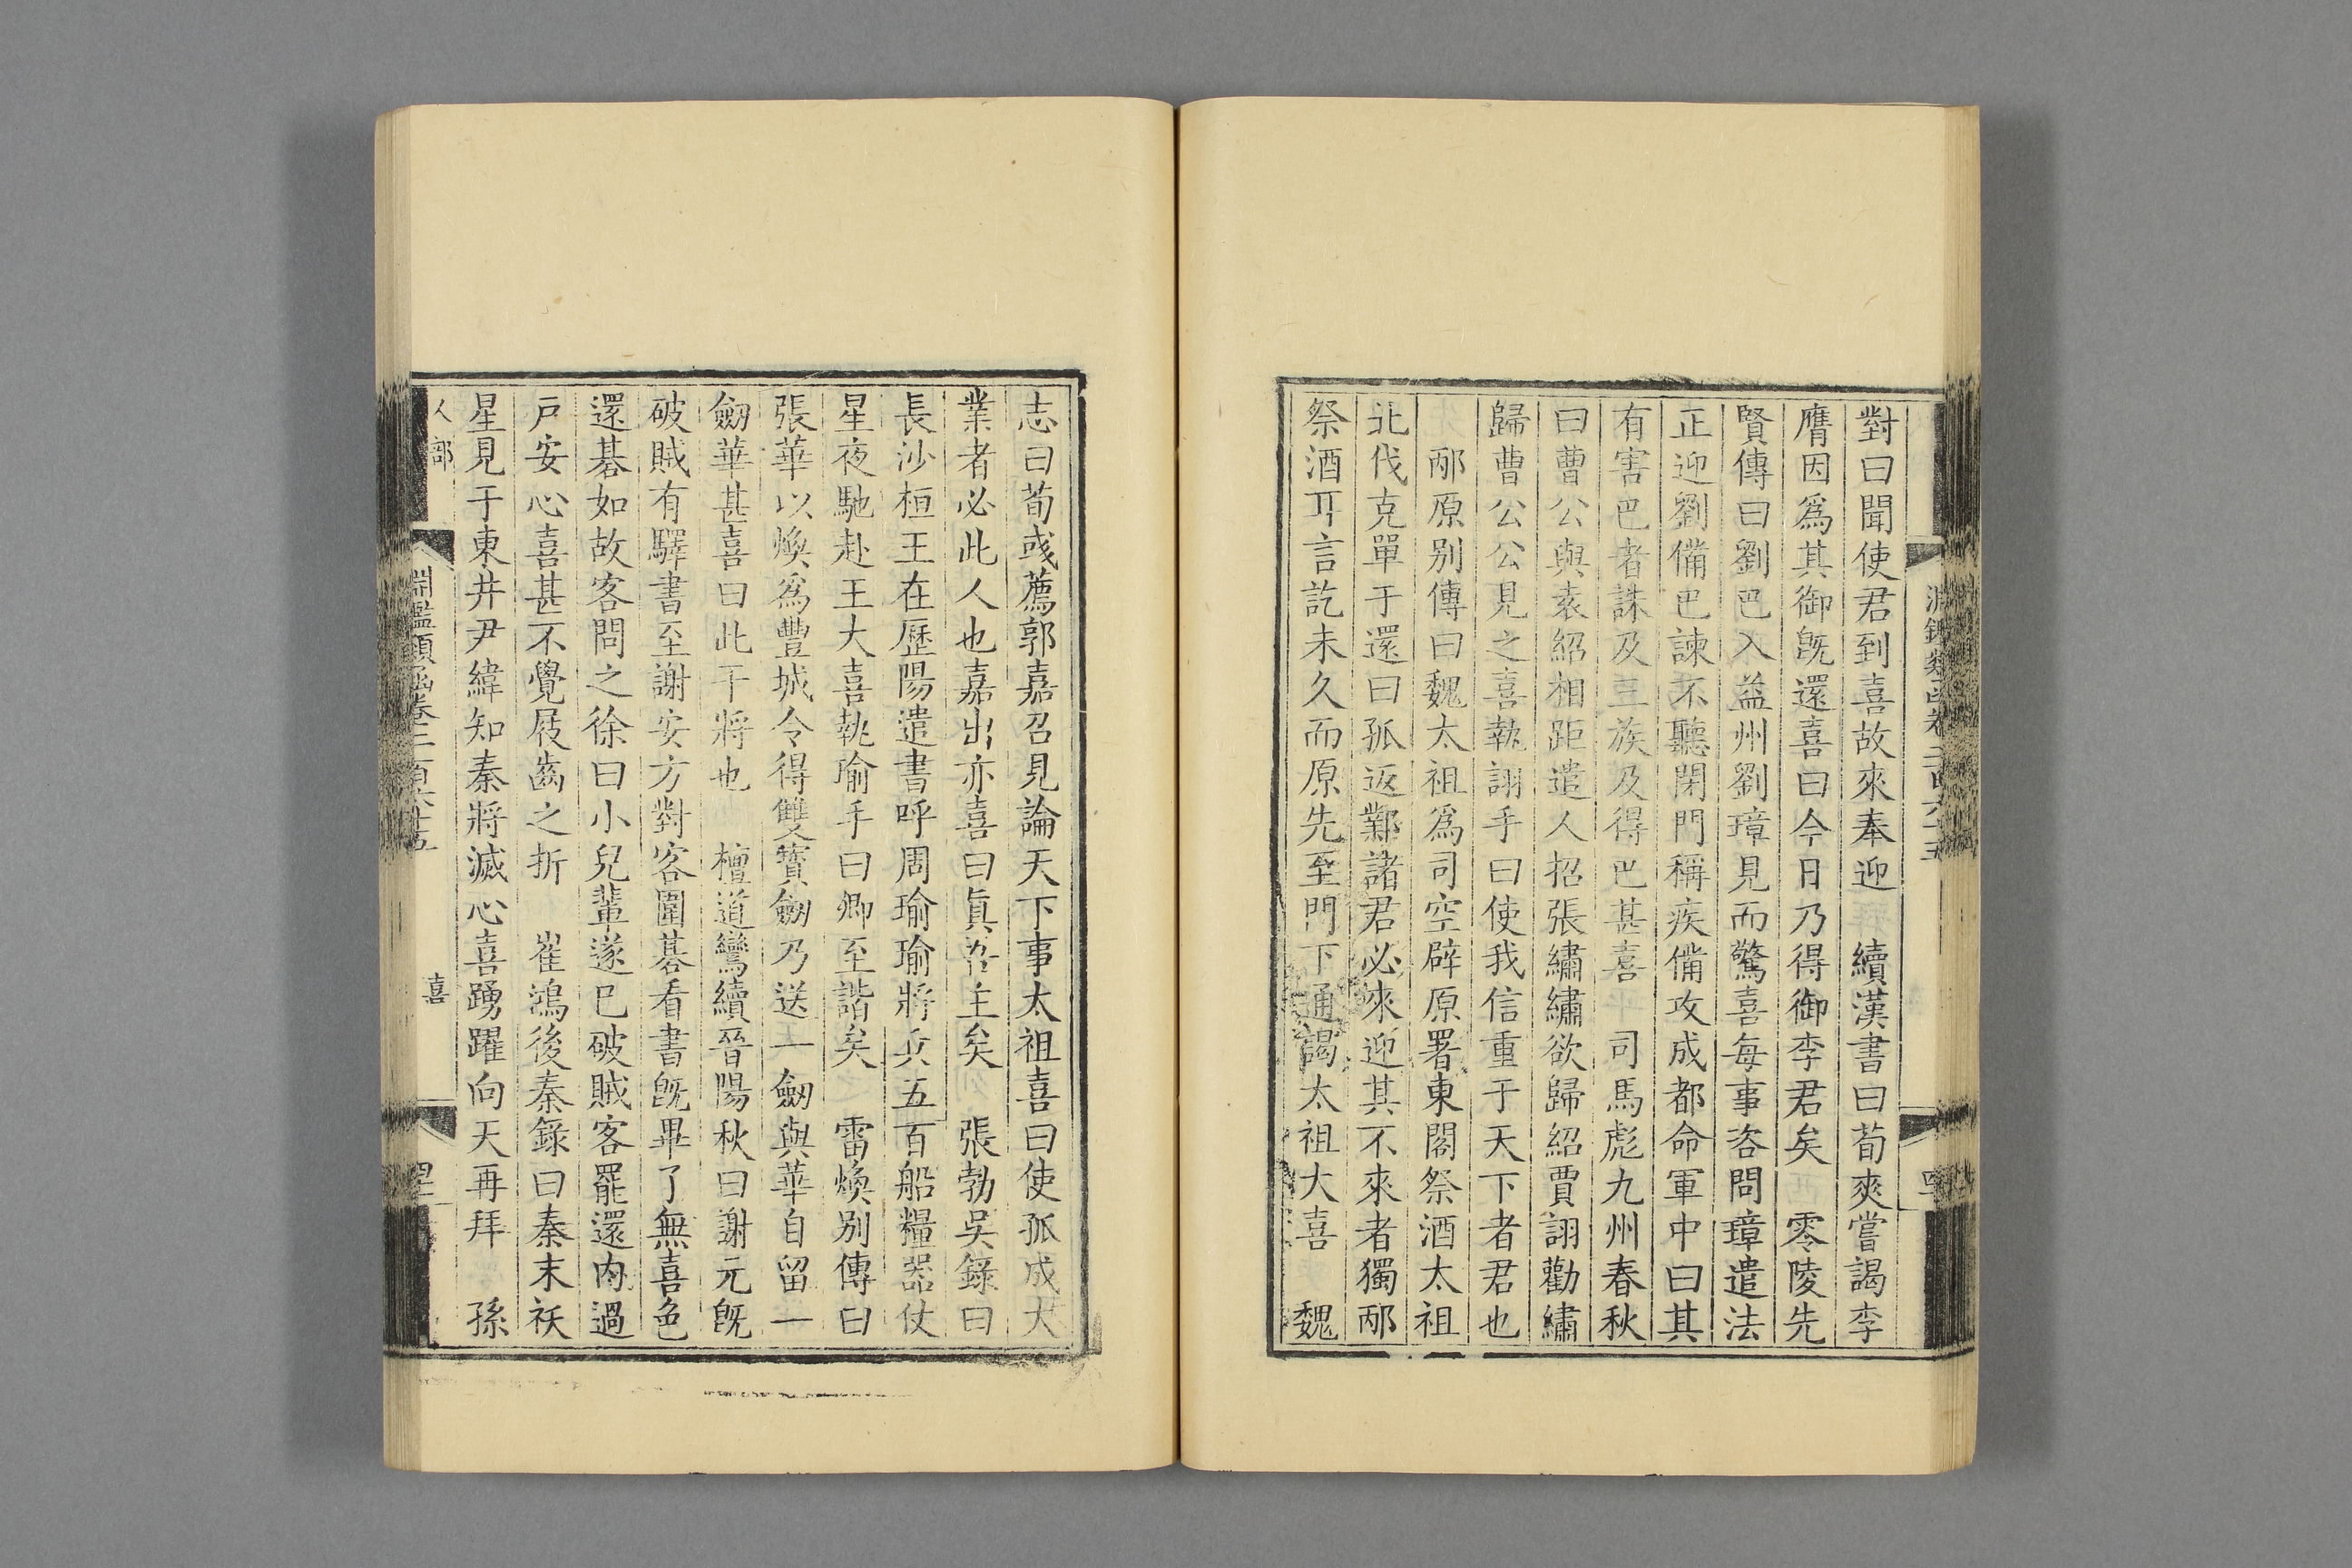 對曰聞使君到喜故來奉迎　續漢書曰荀爽嘗謁李
膺因爲其御旣還喜曰今日乃得御李君矣　零陵先
賢傳曰劉巴入益州劉璋見而驚喜每事咨問璋遣法
正迎劉備巴諫不聽閉門稱疾備攻成都命軍中曰其
有害巴者誅及三族及得巴甚喜　司馬彪九州春秋
曰曹公與袁紹相距遣人招張繡繡欲歸紹賈詡勸繡
歸曹公公見之喜執詡手曰使我信重于天下者君也
邴原別傳曰魏太祖爲司空辟原署東閣祭酒太祖
北伐克單于還曰孤返鄴諸君必來迎其不來者獨邴
祭酒耳言訖未久而原先至門下通謁太祖大喜　魏
志曰荀彧薦郭嘉召見論天下事太祖喜曰使孤成大
業者必此人也嘉出亦喜曰眞吾主矣　張勃吳錄曰
長沙桓王在歷陽遣書呼周瑜瑜將兵五百船糧器仗
星夜馳赴王大喜執瑜手曰卿至諧矣　雷煥別傳曰
張華以煥爲豐城令得雙寶劒乃送一劒與華自留一
劒華甚喜曰此干將也　檀道鸞續晉陽秋曰謝元旣
破賊有驛書至謝安方對客圍碁看書旣畢了無喜色
還碁如故客問之徐曰小兒輩遂已破賊客罷還內過
戸安心喜甚不覺屐齒之折　崔鴻後秦錄曰秦末祅
星見于東井尹緯知秦將滅心喜踴躍向天再拜　孫
人部
淵鑑類函卷二百六十五
喜